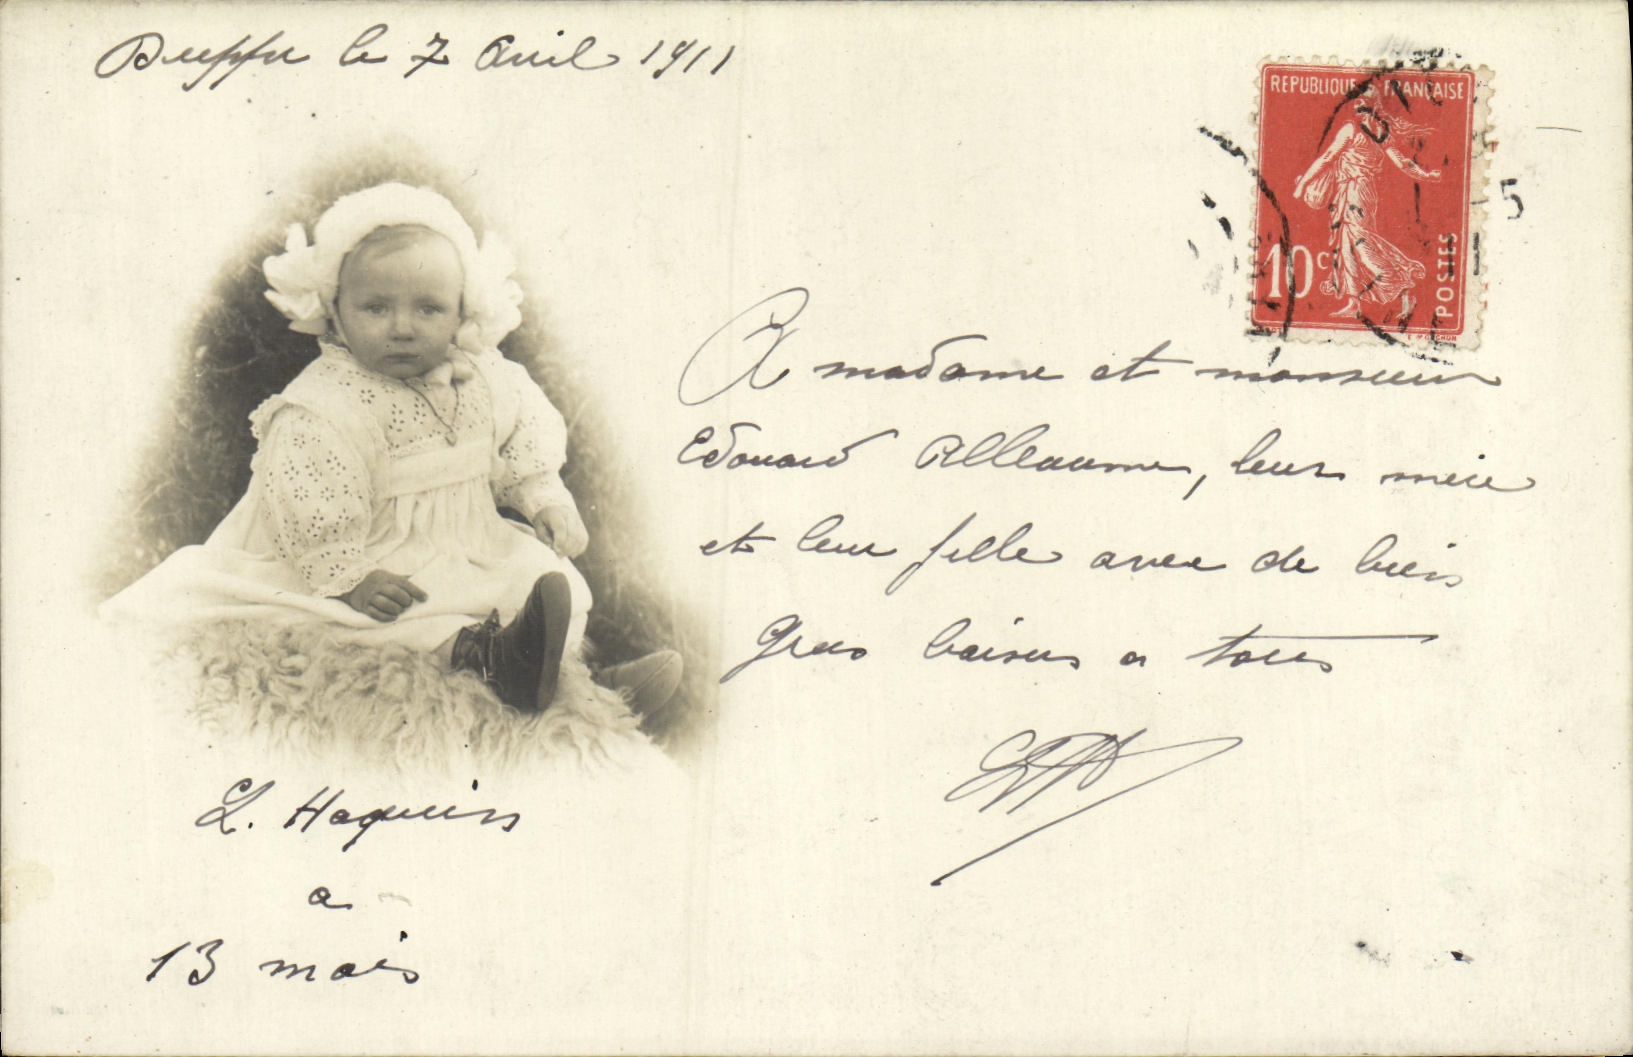 Dieppe le 7 Avril 1911
REPUBLIQUE FRANÇAISE
10c
POSTES
A madame et monsieur
Edouard Alleaume, leur mère
et leur fille avec de biens
Gros baisers a tous
L. Haquin
a
13 mois